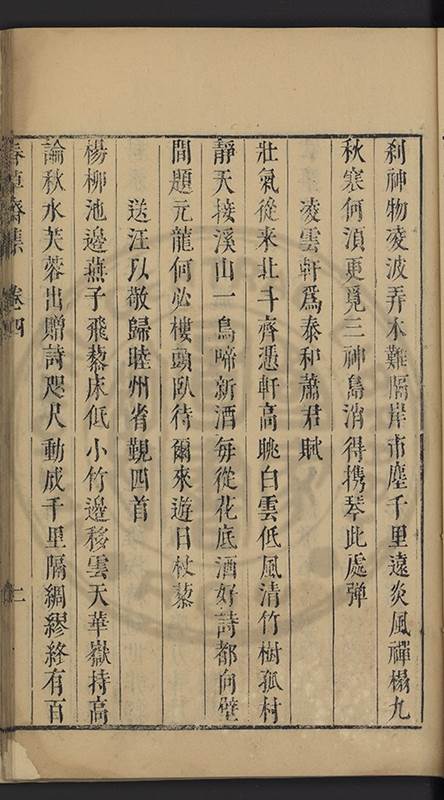 刹神物凌波弄木難隔岸市塵千里遠炎風禪榻九
秋寒何須更覓三神島消得携琴此處彈
凌雲軒爲泰和蕭君賦
壯氣從來北斗齊憑軒高眺白雲低風清竹樹孤村
靜天接溪山一鳥啼新酒每從花底酒好詩都向壁
間題元龍何必樓頭臥待爾來遊日杖藜
送汪以敬歸睦州省覲四首
楊柳池邊燕子飛藜床低小竹邊移雲天華嶽持高
論秋水芙蓉出贈詩咫尺動成千里隔綢繆終有百
春草齋集 卷四 二